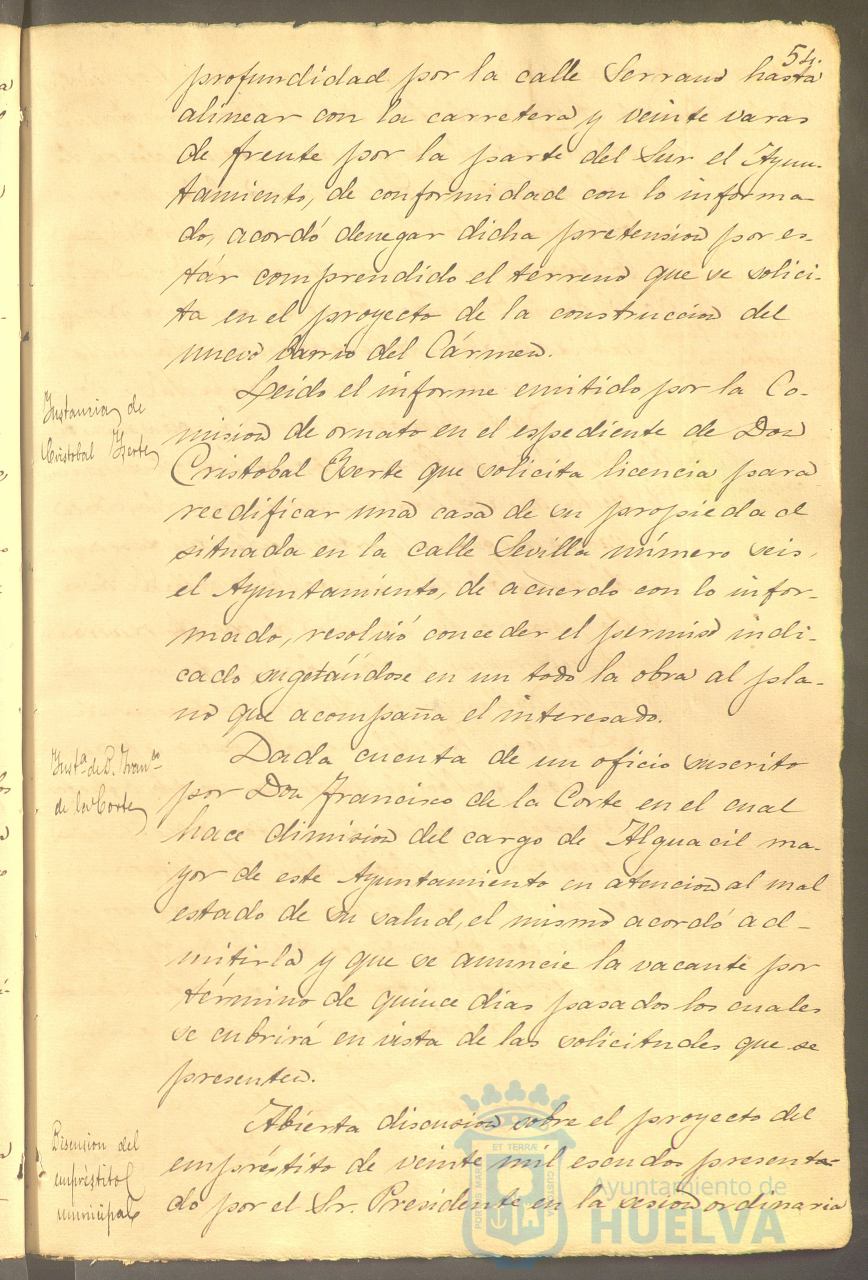 54.
profundidad por la calle Serrano hasta
alinear con la carretera y veinte varas
de frente por la parte del Sur el Ayun-
tamiento, de conformidad con lo informa-
do, acordó denegar dicha pretension por es-
tár comprendido el terreno que se solici-
ta en el proyecto de la construccion del
nuevo barrio del Cármen.
Instancia de
Cristobal
Leido el informe emitido por la Co-
mision de ornato en el espediente de Don
Cristobal que solicita licencia para
reedificar una casa de su propiedad
situada en la calle Sevilla número seis,
el Ayuntamiento, de acuerdo con lo infor-
mado, resolvió conceder el permiso indi-
cado sugetándose en un todo la obra al pla-
no que acompaña el interesado.
Insta. de D. Franco.
de la Corte
Dada cuenta de un oficio suscrito
por Don Francisco de la Corte en el cual
hace dimision del cargo de Alguacil ma-
yor de este Ayuntamiento en atencion al mal
estado de su salud, el mismo acordó ad-
mitirla y que se anuncie la vacante por
término de quince dias pasados los cuales
se cubrirá en vista de las solicitudes que se
presenten.
Discusion del
empréstito
municipal
Abierta discusion sobre el proyecto del
empréstito de veinte mil escudos presenta-
do por el Sr. Presidente en la sesion ordinaria
Ayuntamiento de
HUELVA